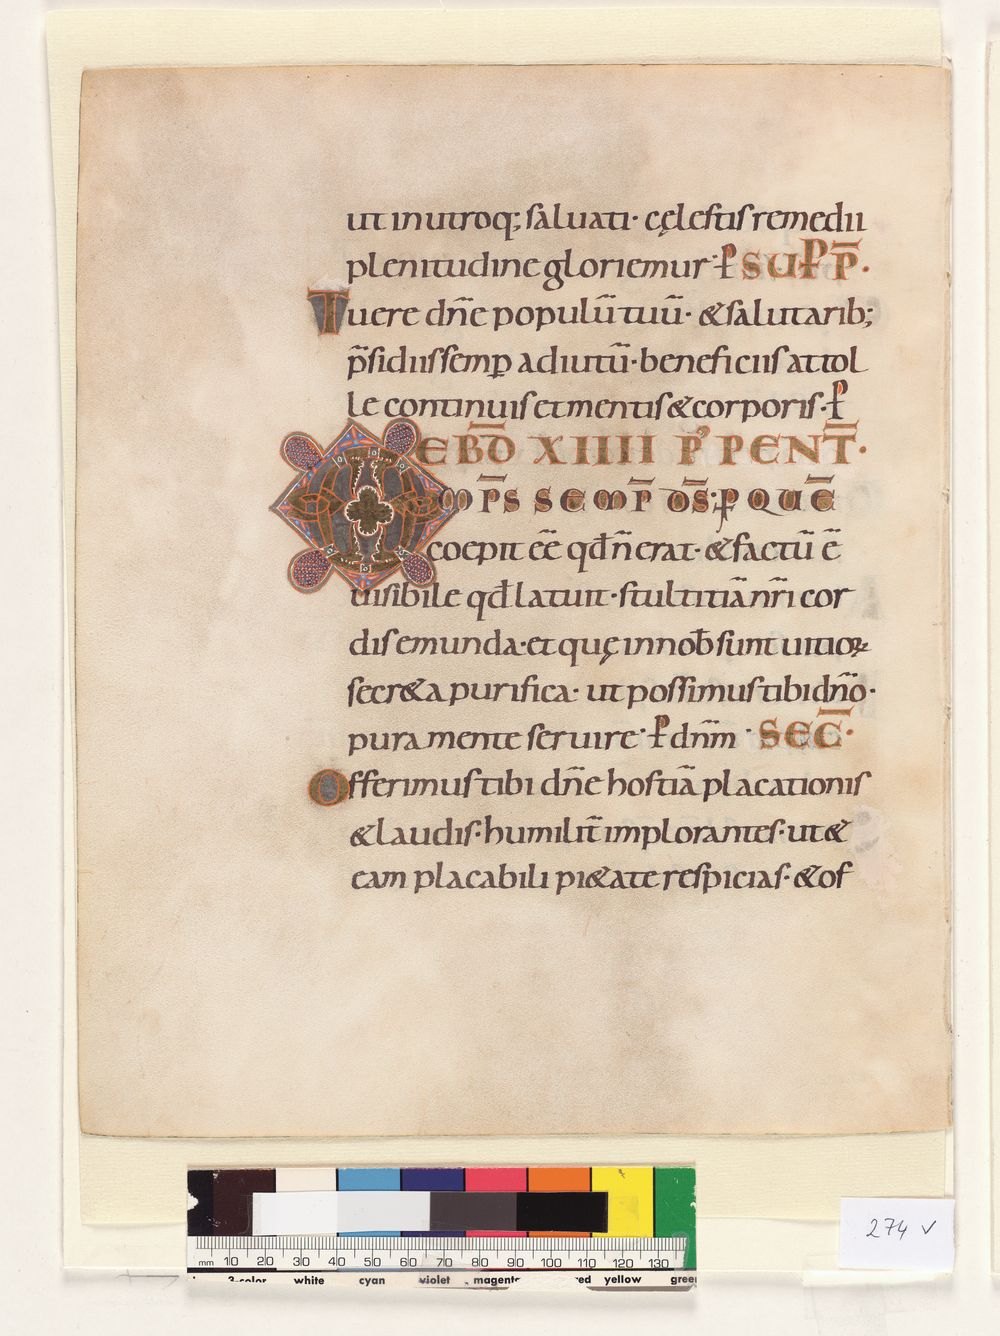 ut inutroq; saluati· cęlestis remedii
plenitudine gloriemur· ꝑ SUPP̄·
Tuere dn̄e populū tuū· &salutarib;
p̄sidiis semp adiutū· beneficiis attol
le continuis et mentis &corporis· ꝑ
EBD̄ XIIII P' PENT̄·
OMP̄S SEMP̄ DS̄; P QUĒ
coepit ēē qd̄ n̄ erat· &factū ē
uisibile qd̄ latuit· stultitiā nr̄i cor
dis emunda· et quę innob̄ sunt uitioꝝ
secr&a purifica· ut possimus tibi dn̄o·
pura mente seruire· ꝑ dn̄m· SEC̄·
Offerimus tibi dn̄e hostiā placationis
&laudis· humilit̄ implorantes· ut&
eam placabili pi&ate respicias· &of
mm 10 20 30 40 50 60 70 80 90 100 110 120 130
3-color white cyan violet magenta red yellow green
274 v